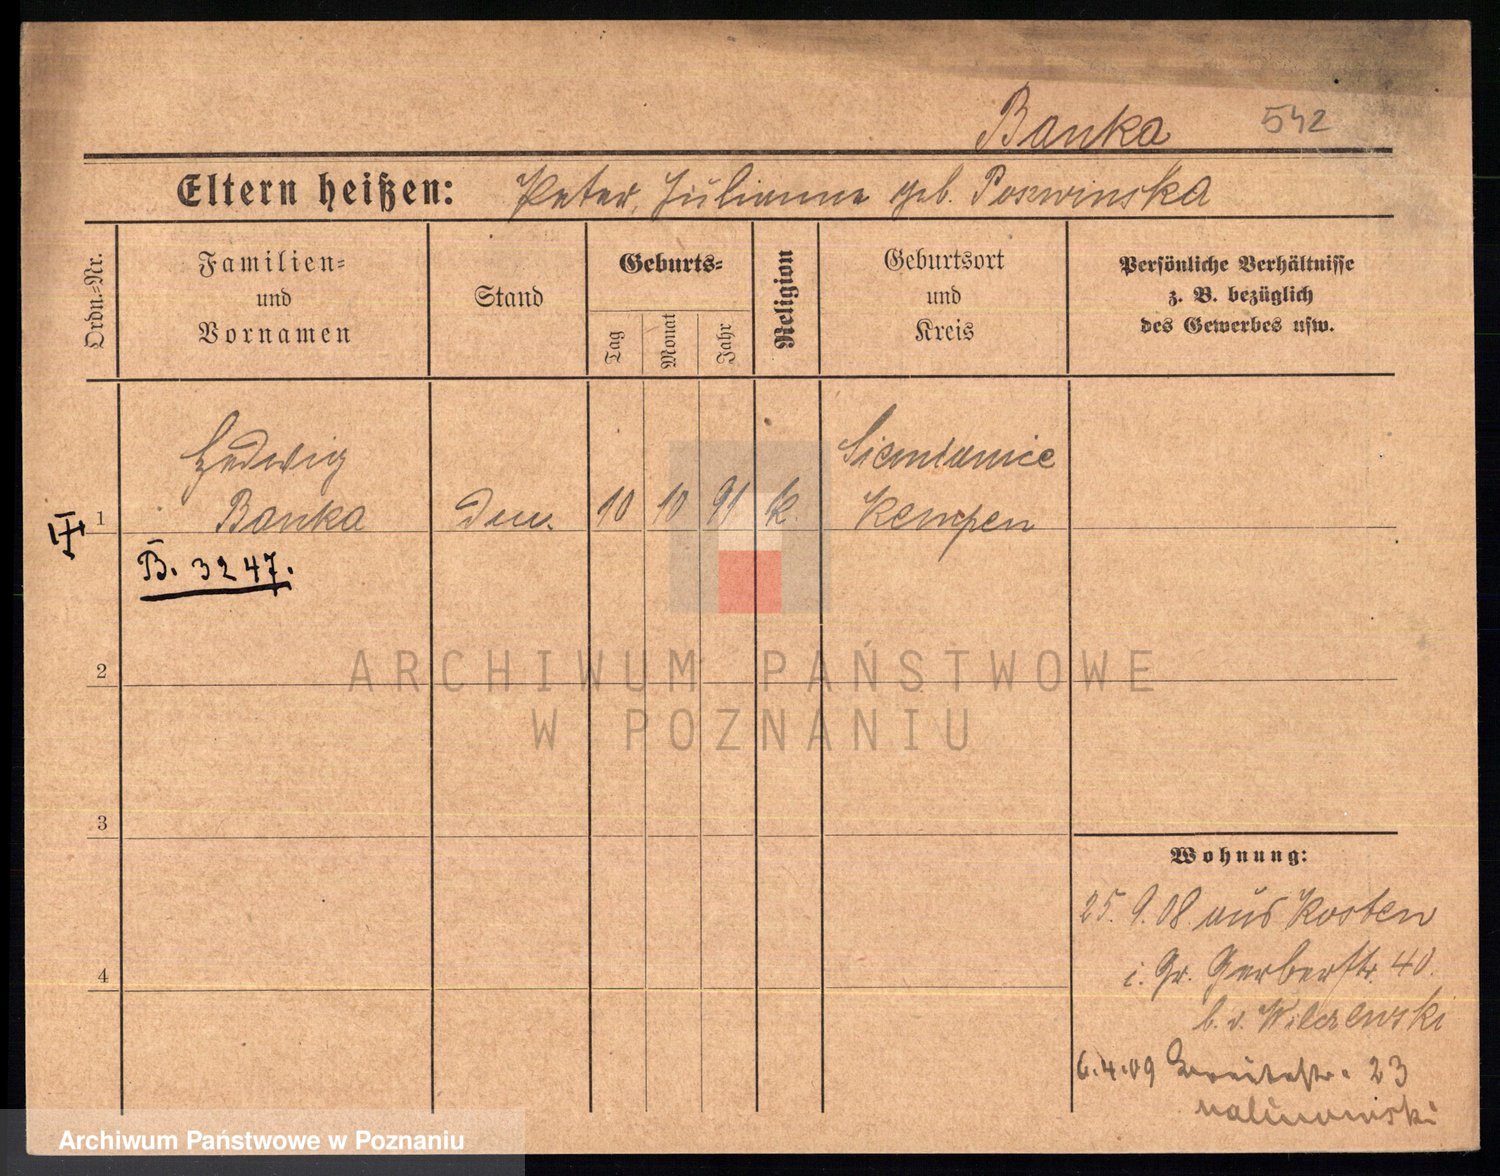 Banka 542
Eltern heißen: Peter, Julianne geb. Poswinska
Ordn.-Nr.
Familien-
und
Vornamen
Stand
Geburts-
Tag
Monat
Jahr
Religion
Geburtsort
und
Kreis
Persönliche Verhältnisse
z. B. bezüglich
des Gewerbes usw.
Hedwig
Banka
10 10 91 k.
Siemianice
Kempen
1
B. 3247.
2
3
4
ARCHIWUM PAŃSTWOWE
W POZNANIU
Wohnung:
25. 9. 08 aus Kosten
i. Gr. Gerberstr. 40.
b. v. Wilczewski
6.4.09 Breitestr. 23
Malinowski
Archiwum Państwowe w Poznaniu